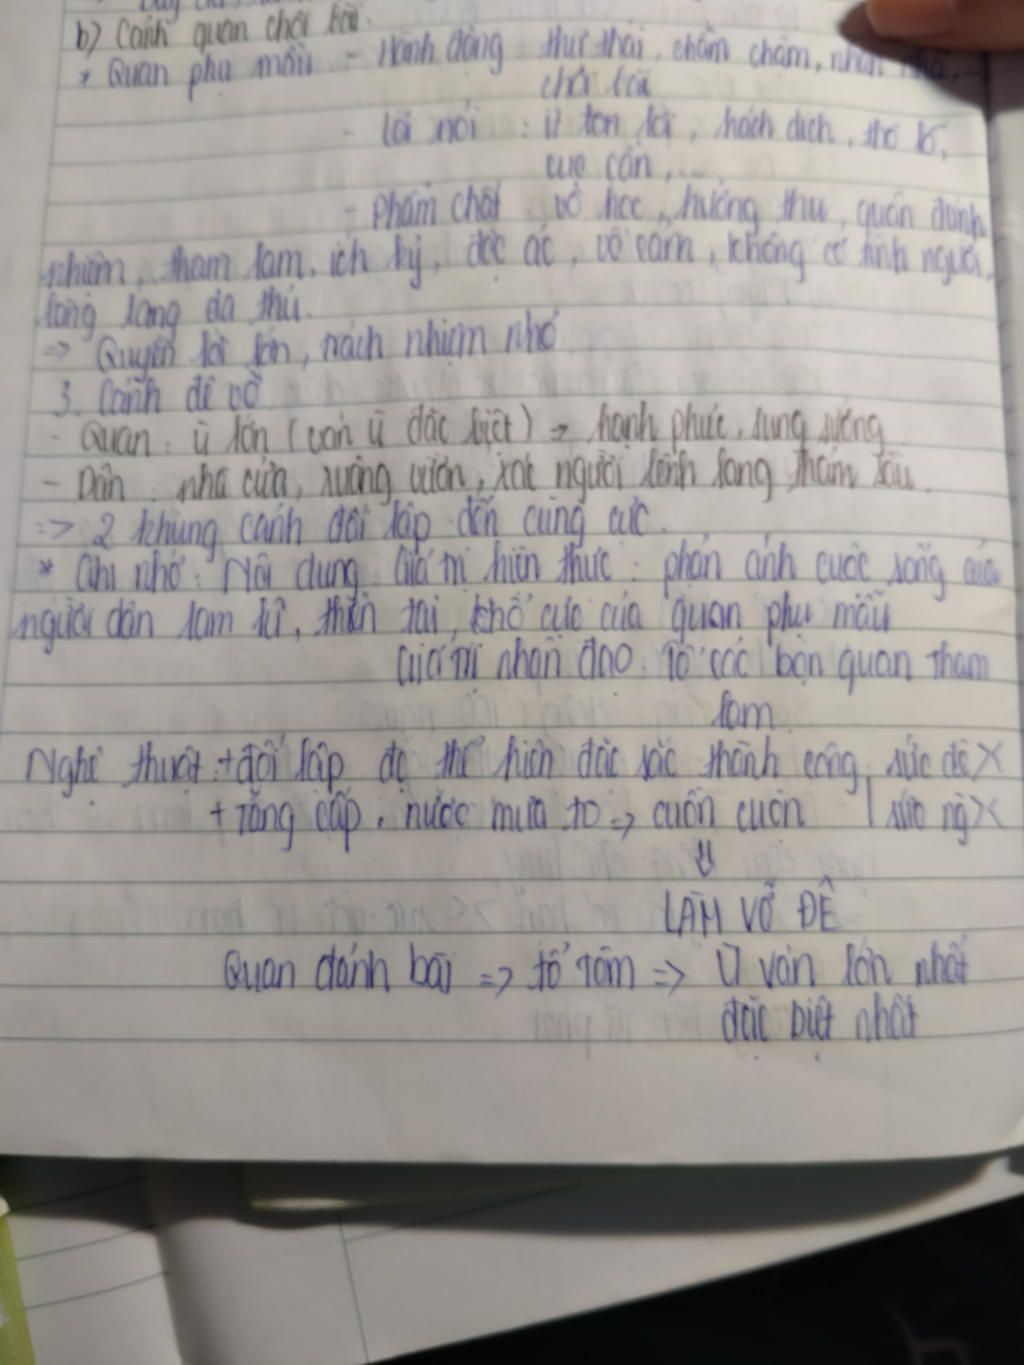 b) Cảnh quan chơi bài.
* Quan phụ mẫu - Hành động thư thái, chầm chậm, nhàn nhã,...
chơi bài
- Lời nói : ít tôn lời, hách dịch, thô lỗ,
cục cằn,...
- Phẩm chất vô học, hưởng thụ, quân danh
nhiệm, tham lam, ích kỷ, độc ác, vô cảm, không có tình người,
lòng lang dạ thú.
=> Quyền lợi lớn, trách nhiệm nhỏ
3. Cảnh đê vỡ
- Quan : ù lớn (ván ù đặc biệt) => hạnh phúc, sung sướng
- Dân : nhà cửa, ruộng vườn, xác người lênh lang thảm sầu.
=> 2 khung cảnh đối lập đến cùng cực.
* Ghi nhớ : Nội dung Giá trị hiện thực : phản ánh cuộc sống của
người dân lam lũ, thiên tai, khổ cực của quan phụ mẫu
Giá trị nhân đạo Tố cáo bọn quan tham
lam
Nghệ thuật : + đối lập để thể hiện đặc sắc thành công, sức đê X
+ Tăng cấp, nước mưa to => cuồn cuộn sức ng X
⇓
LÀM VỠ ĐÊ
Quan đánh bài => tổ tôm => Ù ván lớn nhất
đặc biệt nhất